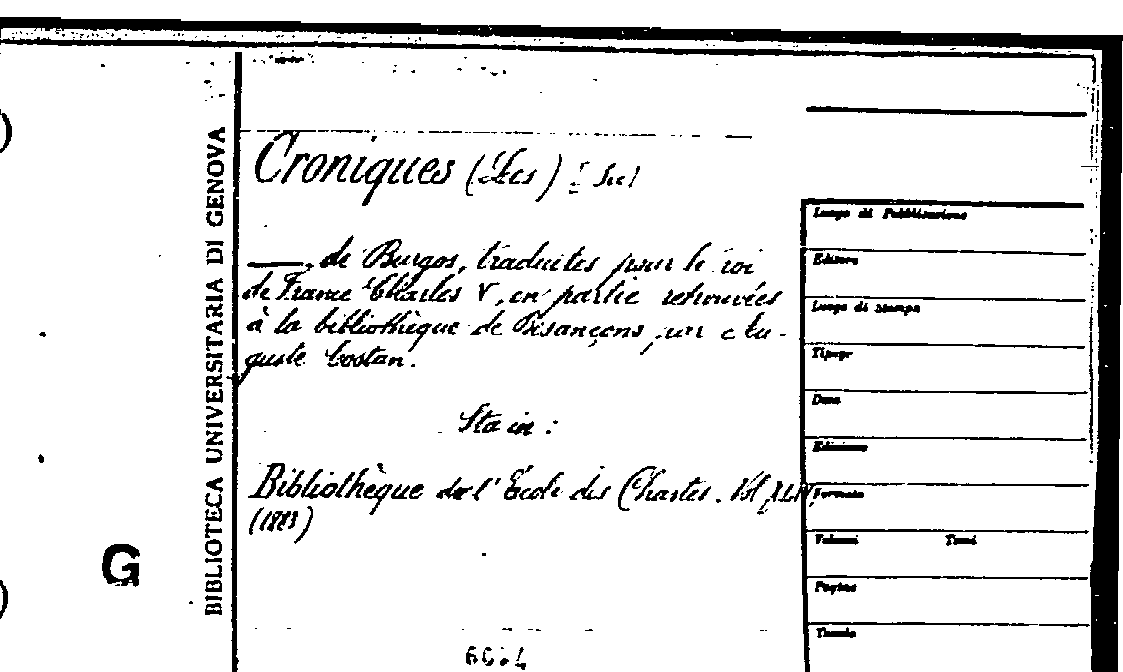 BIBLIOTECA UNIVERSITARIA DI GENOVA
G
Croniques (Les)
—, de Burgos, traduites pour le roi
de France Charles V, en partie retrouvées
à la bibliothèque de Besançons par Au-
guste Castan.
Sta in:
Bibliothèque de l'École des Chartes. Vol. XLIV,
(1883)
Luogo di Pubblicazione
Editore
Luogo di stampa
Tipogr
Data
Edizione
Formato
Volumi Tomi
Pagine